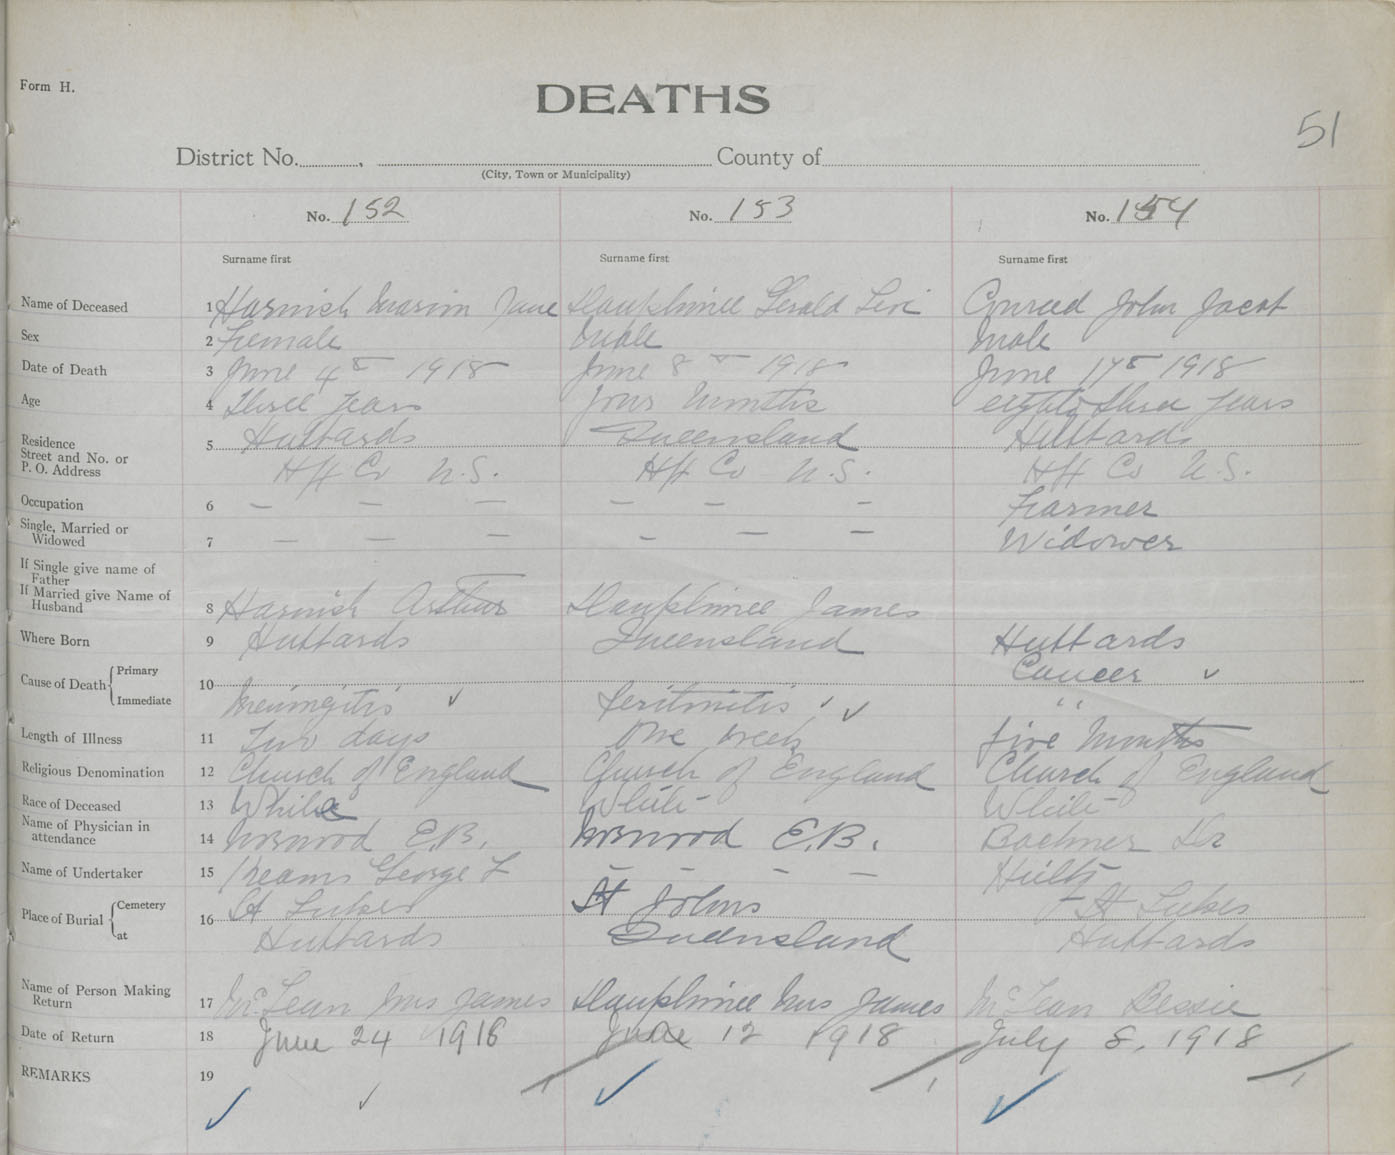 Form H.
DEATHS
51
District No. , County of
(City, Town or Municipality)
No. 152 No. 153 No. 154
Surname first Surname first Surname first
Name of Deceased 1 Harnish Marion June Dauphinee Gerald Levi Conrad John Jacob
Sex 2 Female Male Male
Date of Death 3 June 4th 1918 June 8th 1918 June 17th 1918
Age 4 Three years four Months eighty three years
Residence
Street and No. or
P. O. Address
5 Hubbards Queensland Hubbards
Hfx Co N.S. Hfx Co N.S. Hfx Co N.S.
Occupation 6 — — — — — — Farmer
Single, Married or
Widowed
7 — — — — — — Widower
If Single give name of
Father
If Married give Name of
Husband
8 Harnish Arthur Dauphinee James
Where Born 9 Hubbards Queensland Hubbards
Cause of Death { Primary
Immediate
10 Cancer
Meningitis Peritonitis "
Length of Illness 11 Two days One week five Months
Religious Denomination 12 Church of England Church of England Church of England
Race of Deceased 13 White White White
Name of Physician in
attendance
14 Norwood E.B. Norwood E.B. Boehner Dr
Name of Undertaker 15 George L — — — — Hiltz
Place of Burial { Cemetery
at
16 St Lukes St Johns St Lukes
Hubbards Queensland Hubbards
Name of Person Making
Return
17 McLean Mrs James Dauphinee Mrs James McLean Bessie
Date of Return 18 June 24 1918 June 12 1918 July 8, 1918
REMARKS 19